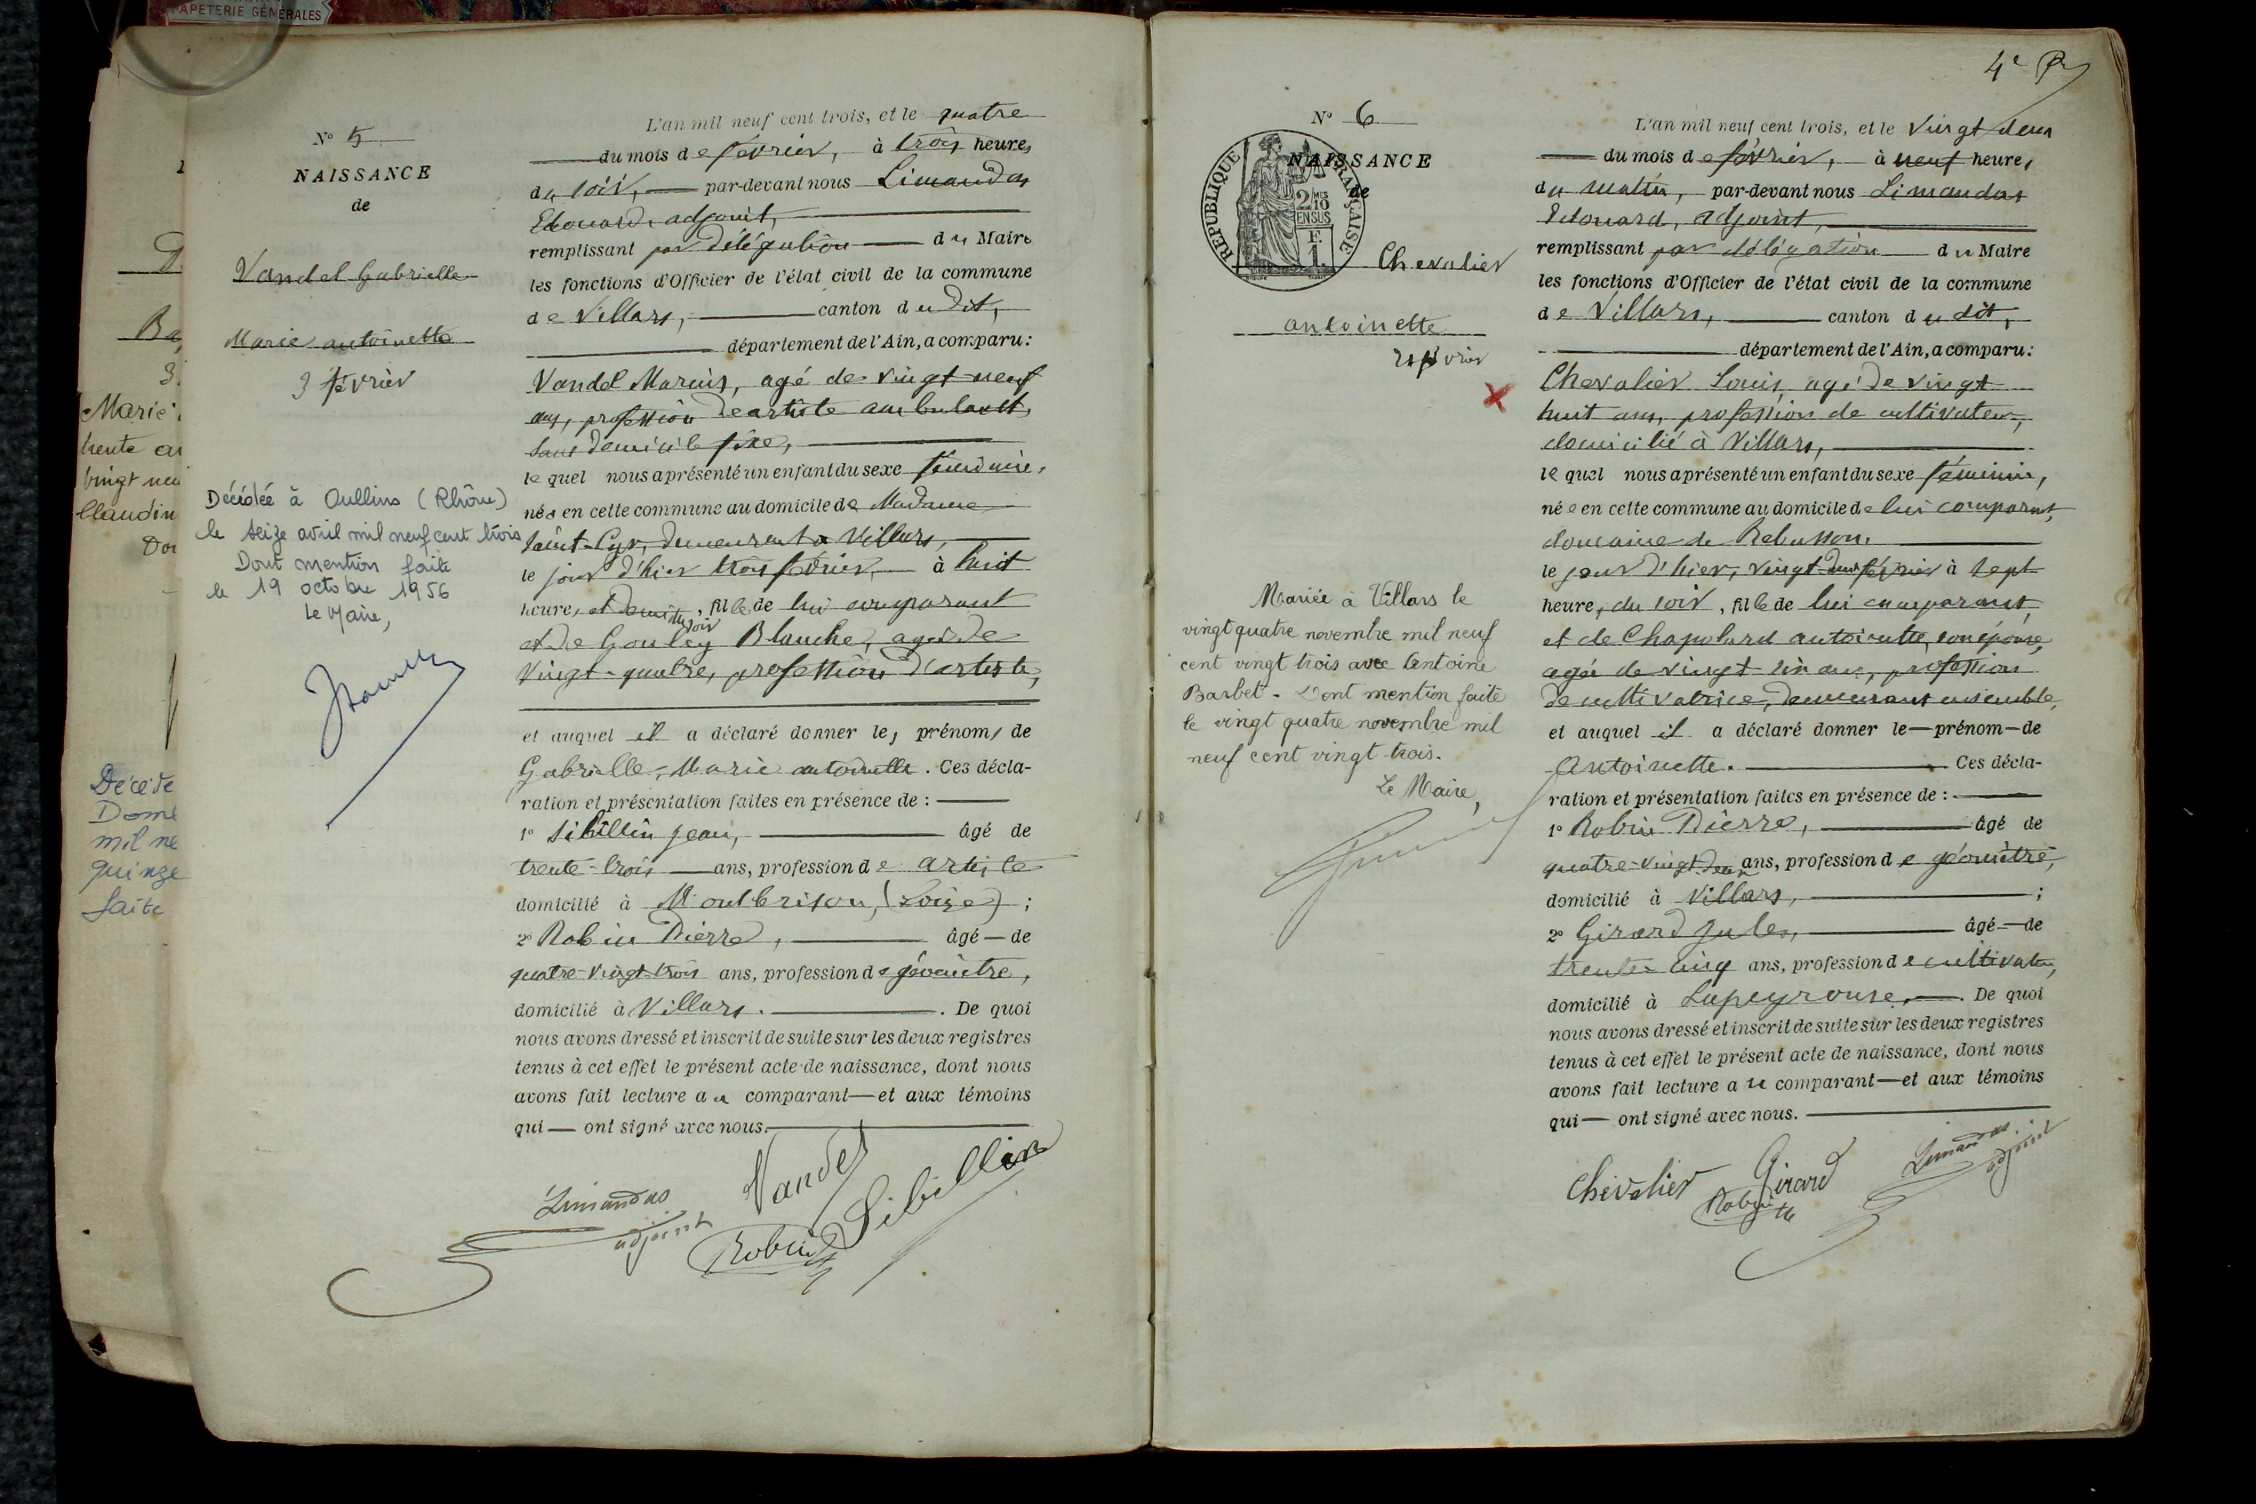 PAPETERIE GÉNÉRALES
Marie
trente
vingt
Claudin
Décédé
mil ne
quinze
faite
N° 5
NAISSANCE
de
Vandel Gabrielle
Marie antoinette
3 février
Décédée à Oullins (Rhône)
le seize avril mil neuf cent trois
Dont mention faite
le 19 octobre 1956
Le Maire,
L'an mil neuf cent trois, et le quatre
du mois de février, à trois heures
du soir, par-devant nous Limandas
Edouard, adjoint,
remplissant par délégation du Maire
les fonctions d'Officier de l'état civil de la commune
de Villars, canton du dit,
département de l'Ain, a comparu:
Vandel Marius, agé de vingt-neuf
ans, profession de artiste ambulant,
sans domicile fixe,
le quel nous a présenté un enfant du sexe féminin,
née en cette commune au domicile de Madame
Saint-Cyr, demeurant à Villars,
le jour d'hier trois février, à huit
heures et demie du soir, fille de lui comparant
et de Gouley Blanche, agée de
vingt-quatre, profession d'artiste,
et auquel il a déclaré donner les prénoms de
Gabrielle, Marie antoinette. Ces décla-
ration et présentation faites en présence de :
1° Sibillin Jean, âgé de
trente-trois ans, profession de artiste
domicilié à Montbrison, (Loire) ;
2° Robin Pierre, âgé de
quatre-vingt-trois ans, profession de géomètre,
domicilié à Villars. De quoi
nous avons dressé et inscrit de suite sur les deux registres
tenus à cet effet le présent acte de naissance, dont nous
avons fait lecture au comparant et aux témoins
qui ont signé avec nous.
Limandas
adjoint
Vandel
Robin
Sibillin
4e
N° 6
NAISSANCE
de
RÉPUBLIQUE FRANÇAISE
2/10 EN SUS
F. 1.
Chevalier
antoinette
21 février
Mariée à Villars le
vingt quatre novembre mil neuf
cent vingt trois avec Antoine
Barbet. Dont mention faite
le vingt quatre novembre mil
neuf cent vingt trois.
Le Maire,
L'an mil neuf cent trois, et le vingt deux
du mois de février, à neuf heures
du matin, par-devant nous Limandas
Edouard, adjoint,
remplissant par délégation du Maire
les fonctions d'Officier de l'état civil de la commune
de Villars, canton du dit,
département de l'Ain, a comparu:
Chevalier Louis, agé de vingt
huit ans, profession de cultivateur,
domicilié à Villars,
le quel nous a présenté un enfant du sexe féminin,
née en cette commune au domicile de lui comparant,
domaine de Rebusson.
le jour d'hier, vingt février à sept
heures du soir, fille de lui comparant,
et de Chapolard antoinette, son épouse,
agée de vingt-un ans, profession
de cultivatrice, demeurant ensemble,
et auquel il a déclaré donner le prénom de
Antoinette. Ces décla-
ration et présentation faites en présence de :
1° Robin Pierre, âgé de
quatre-vingt-deux ans, profession de géomètre,
domicilié à Villars, ;
2° Girard Jules, âgé de
trente cinq ans, profession de cultivateur,
domicilié à Lapeyrouse. De quoi
nous avons dressé et inscrit de suite sur les deux registres
tenus à cet effet le présent acte de naissance, dont nous
avons fait lecture au comparant et aux témoins
qui ont signé avec nous.
Chevalier
Girard
Robin
Limandas
adjoint